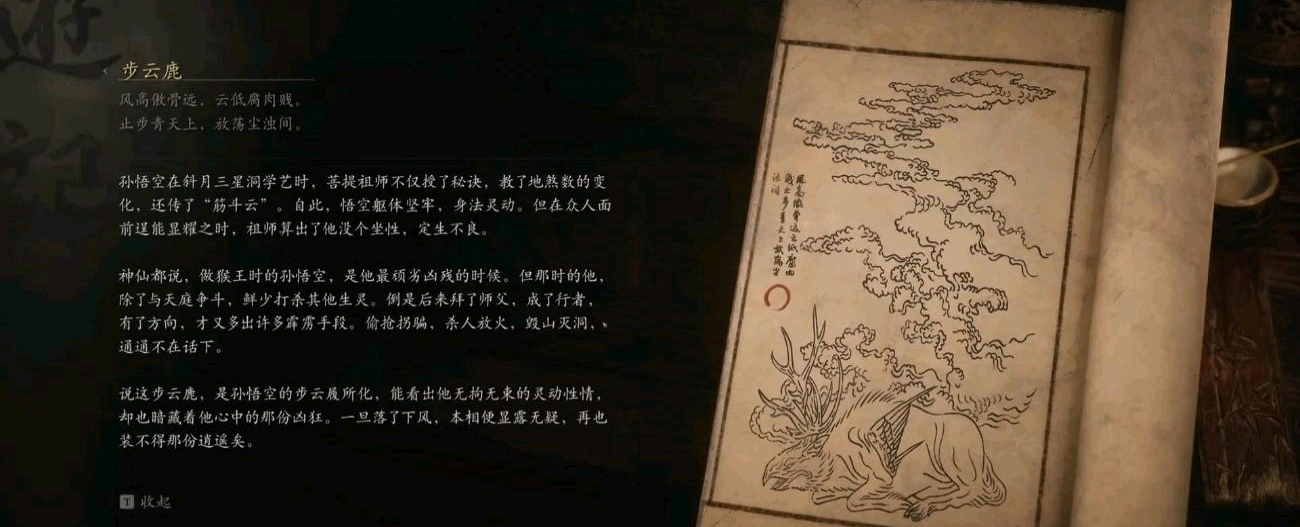 步云鹿
风高傲骨远，云低腐肉贱。
止步青天上，放荡尘浊间。
孙悟空在斜月三星洞学艺时，菩提祖师不仅授了秘诀，教了地煞数的变
化，还传了“筋斗云”。自此，悟空躯体坚牢，身法灵动。但在众人面
前逞能显耀之时，祖师算出了他没个坐性，定生不良。
神仙都说，做猴王时的孙悟空，是他最顽劣凶残的时候。但那时的他，
除了与天庭争斗，鲜少打杀其他生灵。倒是后来拜了师父，成了行者，
有了方向，才又多出许多霹雳手段。偷抢拐骗，杀人放火，毁山灭洞，
通通不在话下。
说这步云鹿，是孙悟空的步云履所化，能看出他无拘无束的灵动性情，
却也暗藏着他心中的那份凶狂。一旦落了下风，本相便显露无疑，再也
装不得那份逍遥矣。
T 收起
風高傲骨遠云低腐肉
賤止步青天上放蕩尘
浊间